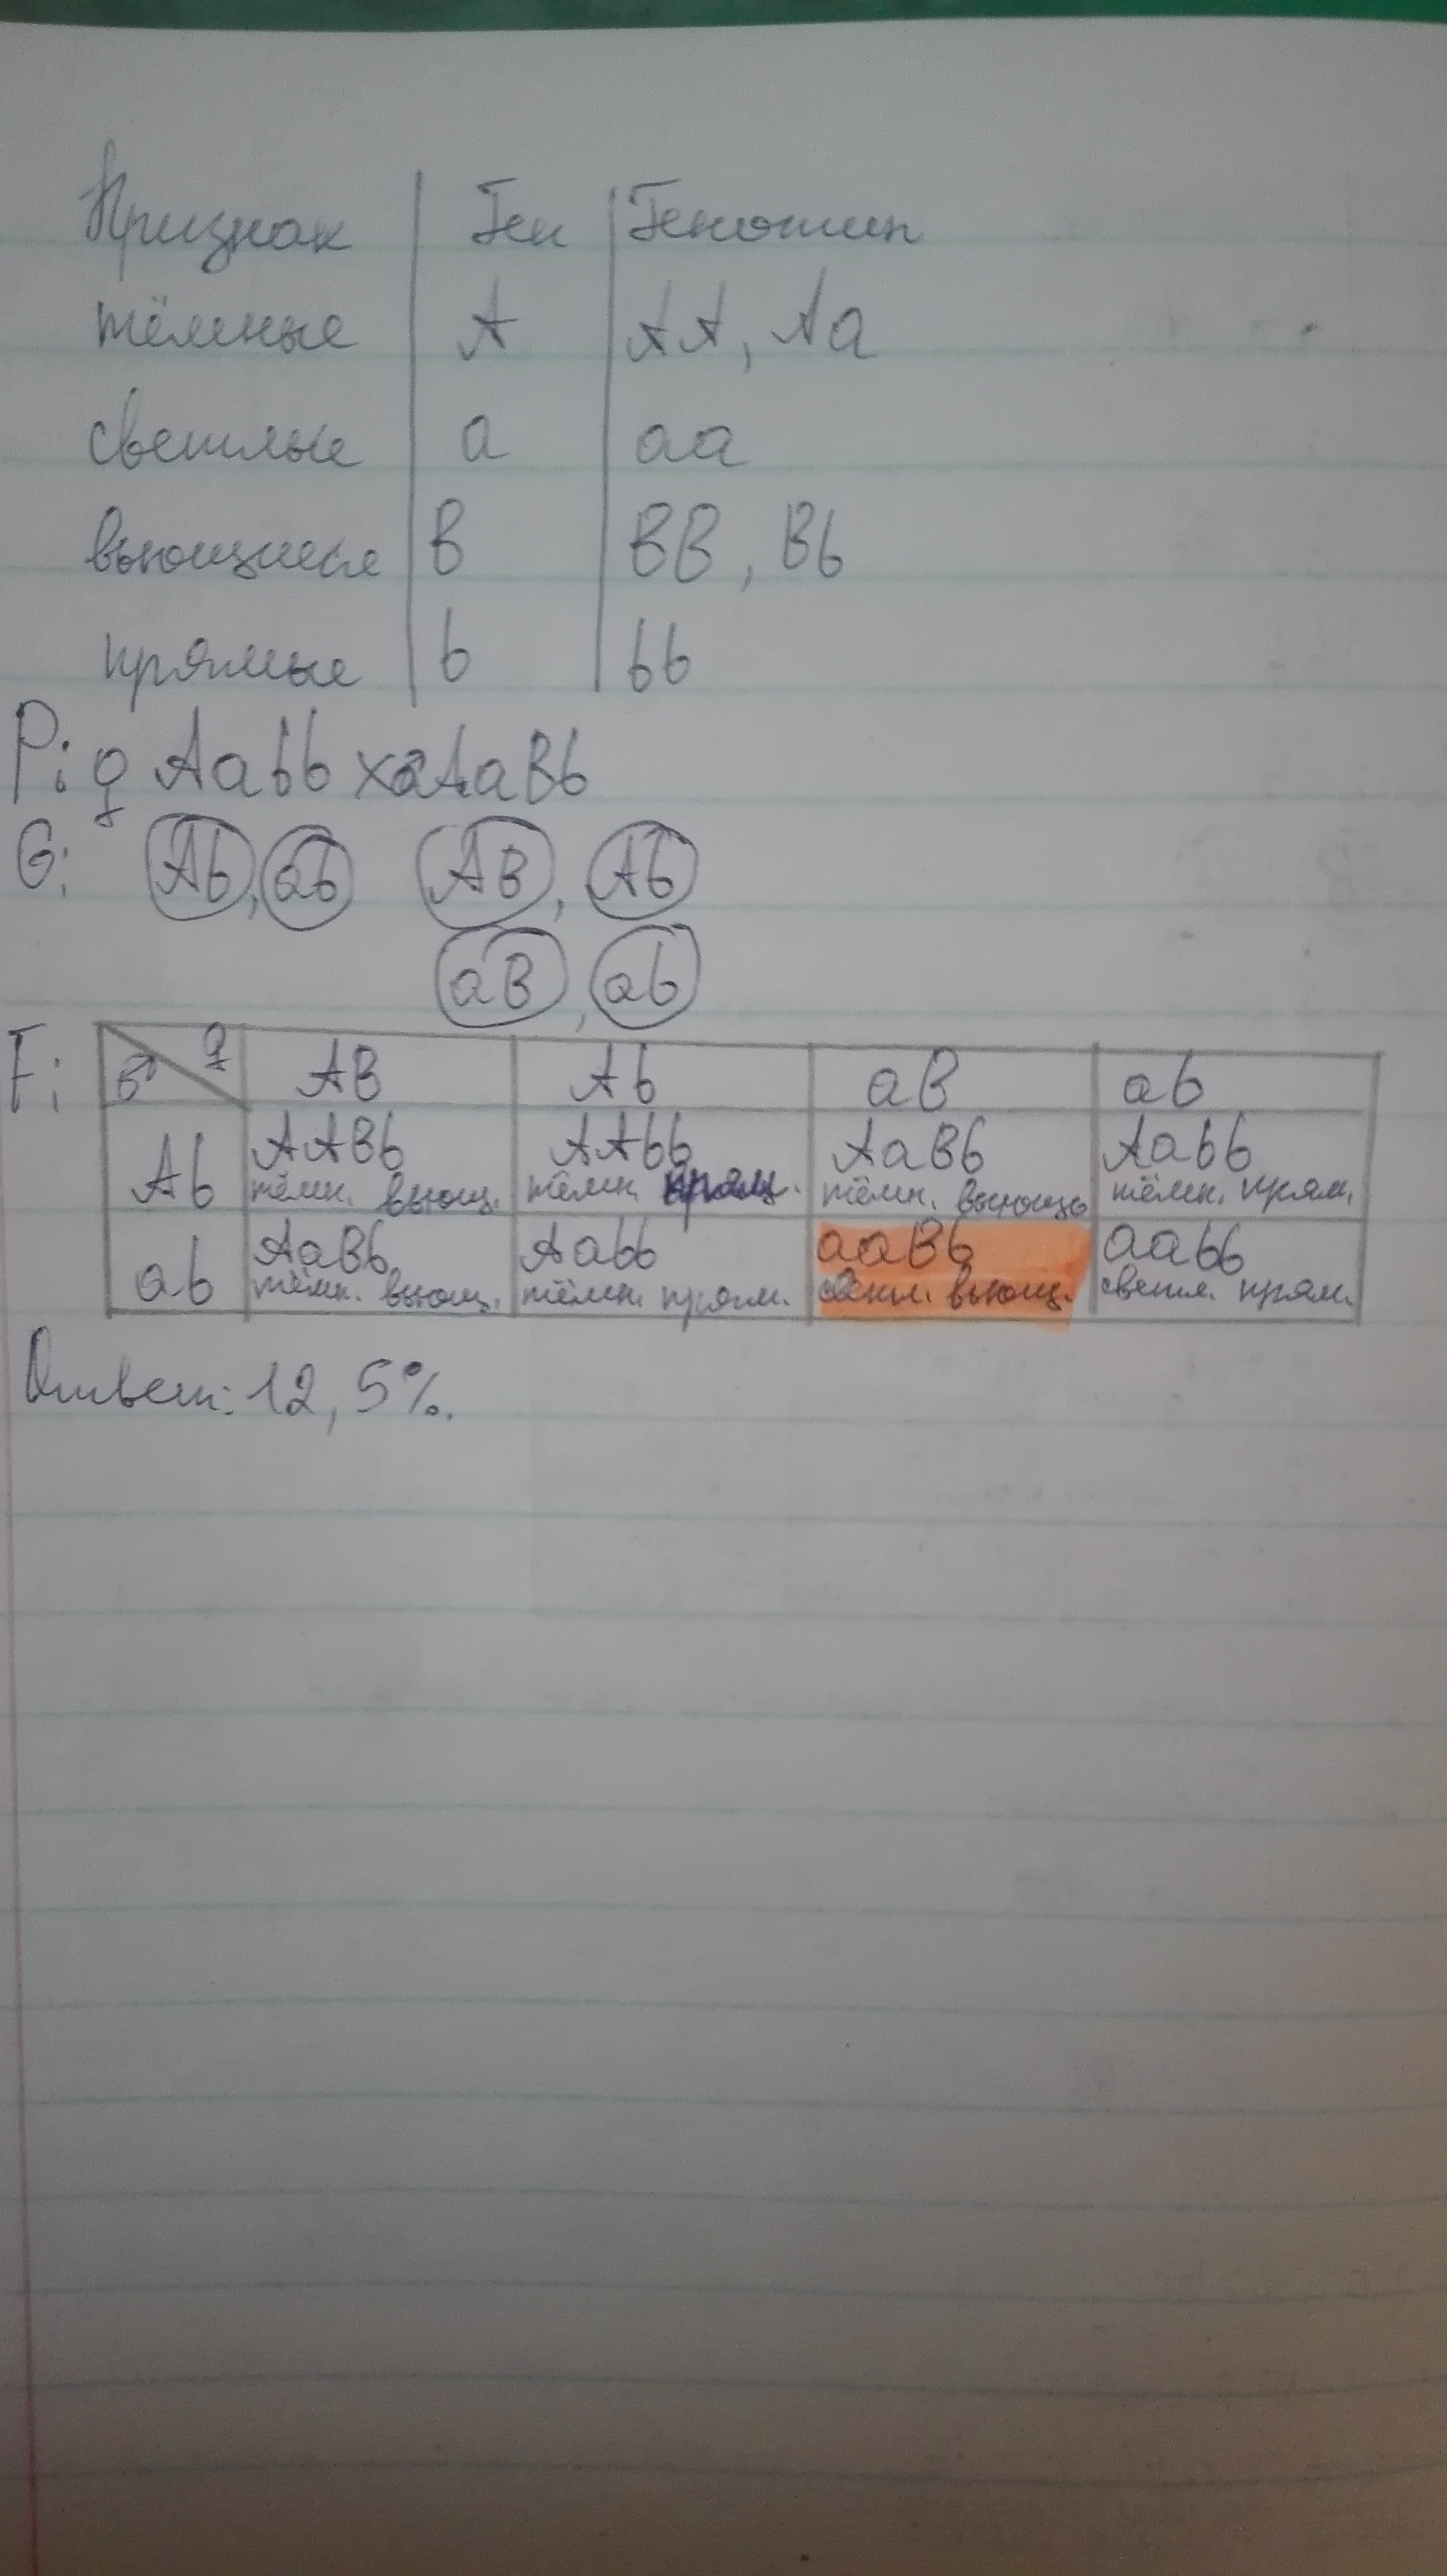 Признак Ген Генотип
тёмные А АА, Аа
светлые а аа
вьющиеся В ВВ, Вb
прямые b bb
P: ♀ Aabb x ♂ AaBb
G: Ab, ab AB, Ab
aB, ab
F: ♂ ♀ AB Ab aB ab
Ab AABb AAbb AaBb Aabb
тёмн. вьющ. тёмн. прям. тёмн. вьющ. тёмн. прям.
ab AaBb Aabb aaBb aabb
тёмн. вьющ. тёмн. прям. светл. вьющ. светл. прям.
Ответ: 12,5%.